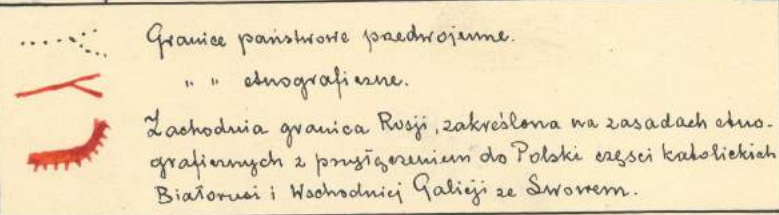 Granice państwowe przedwojenne.
" " etnograficzne.
Zachodnia granica Rosji, zakreślona na zasadach etno-
graficznych z przyłączeniem do Polski części katolickich
Białorusi i Wschodniej Galicji ze Lwowem.